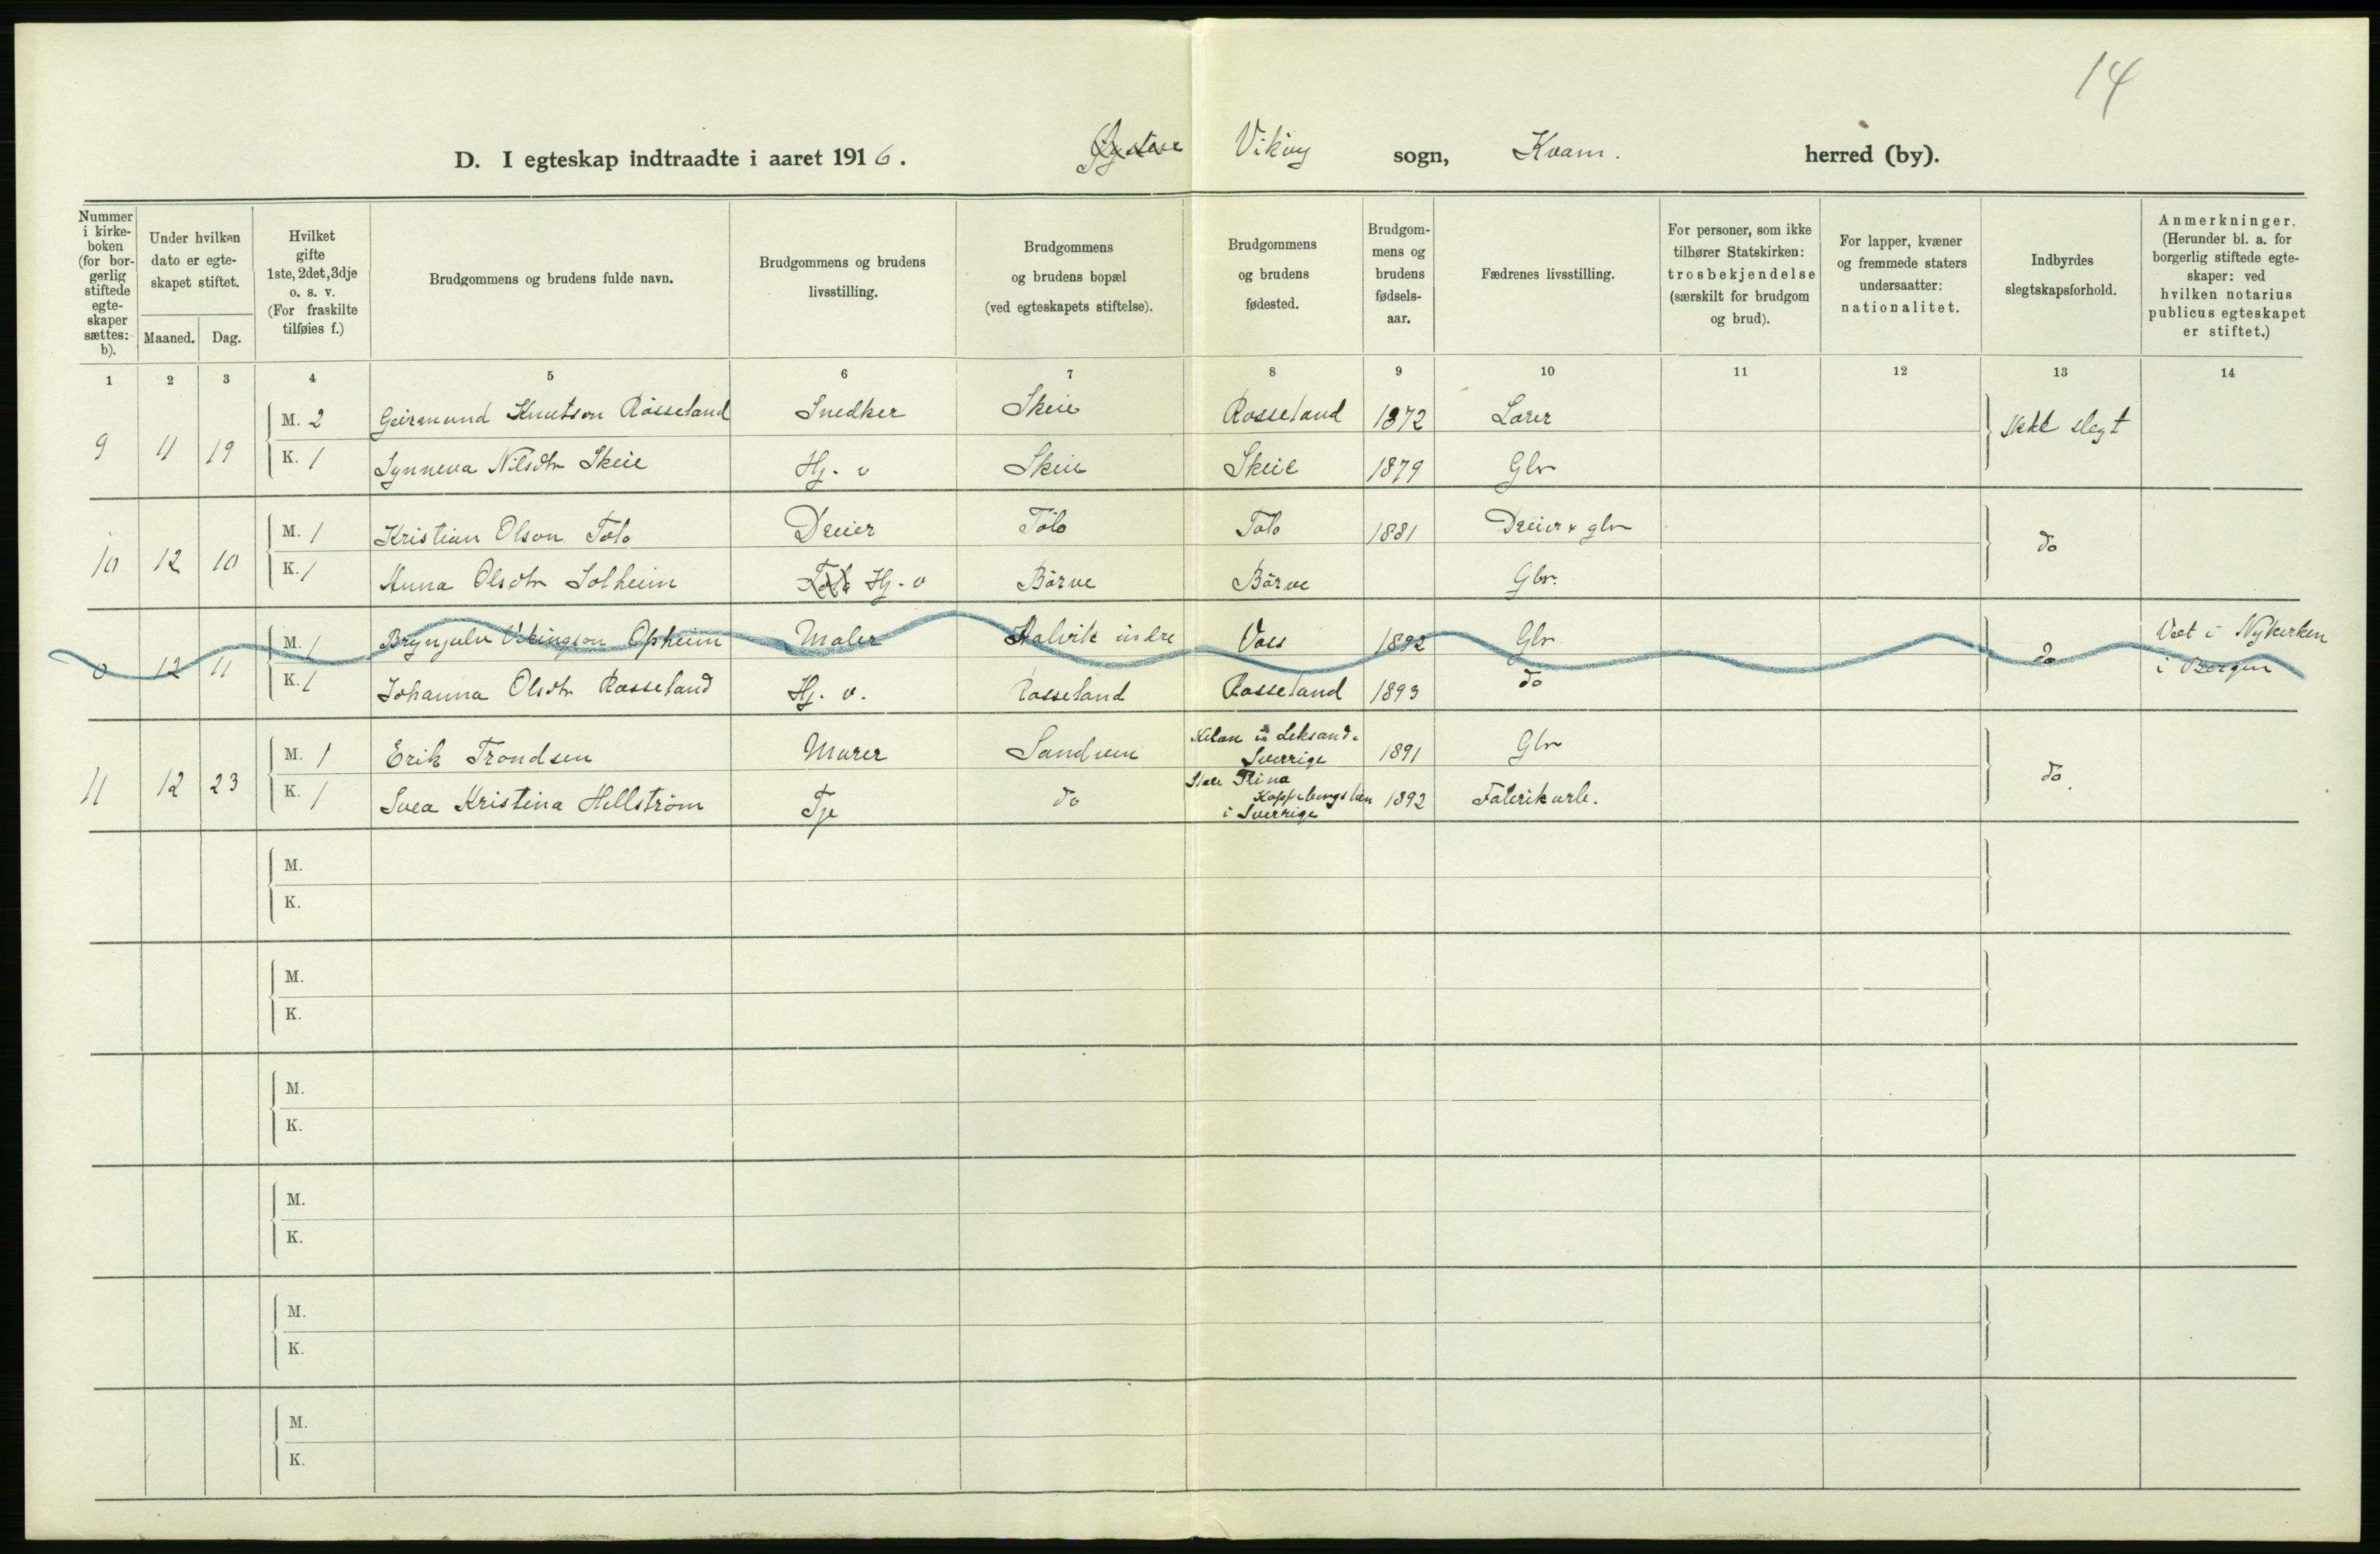 14
D. I egteskap indtraadte i aaret 1916. Vikøy sogn, Kvam. herred (by).
Nummer i kirke-boken (for bor-gerlig stiftede egte-skaper sættes: b).
Under hvilken dato er egte-skapet stiftet.
Maaned. Dag.
Hvilket gifte 1ste, 2det, 3dje o. s. v. (For fraskilte tilføies f.)
Brudgommens og brudens fulde navn.
Brudgommens og brudens livsstilling.
Brudgommens og brudens bopæl (ved egteskapets stiftelse).
Brudgommens og brudens fødested.
Brudgom-mens og brudens fødsels-aar.
Fædrenes livsstilling.
For personer, som ikke tilhører Statskirken: trosbekjendelse (særskilt for brudgom og brud).
For lapper, kvæner og fremmede staters undersaatter: nationalitet.
Indbyrdes slegtskapsforhold.
Anmerkninger. (Herunder bl. a. for borgerlig stiftede egte-skaper: ved hvilken notarius publicus egteskapet er stiftet.)
1 2 3 4 5 6 7 8 9 10 11 12 13 14
9 11 19 M. 2 Geirmund Knutson Rosseland Snedker Skeie Rosseland 1872 Lærer Ikke slegt
K. 1 Synneva Nilsdtr Skeie Hj. v Skeie Skeie 1879 Gbr
10 12 10 M. 1 Kristian Olson Tolo Dreier Tolo Tolo 1881 Dreier & gbr do
K. 1 Anna Olsdtr Solheim Tolo Hj. v Børve Børve Gbr.
0 12 11 M. 1 Brynjulv Vikingson Opheim Maler Aalvik indre Voss 1892 Gbr do Viet i Nykirken i Bergen
K. 1 Johanna Olsdtr Rosseland Hj. v. Rosseland Rosseland 1893 do
11 12 23 M. 1 Erik Trondsen Murer Sandven i Leksand. Sverrige 1891 Gbr do.
K. 1 Svea Kristina Hellström Tje do Kopparbergs län i Sverrige 1892 Fabrikarb.
M.
K.
M.
K.
M.
K.
M.
K.
M.
K.
M.
K.